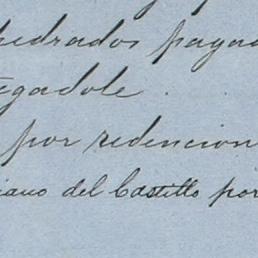 pedrados pagad
egadole.
por redencion
iano del Castillo por